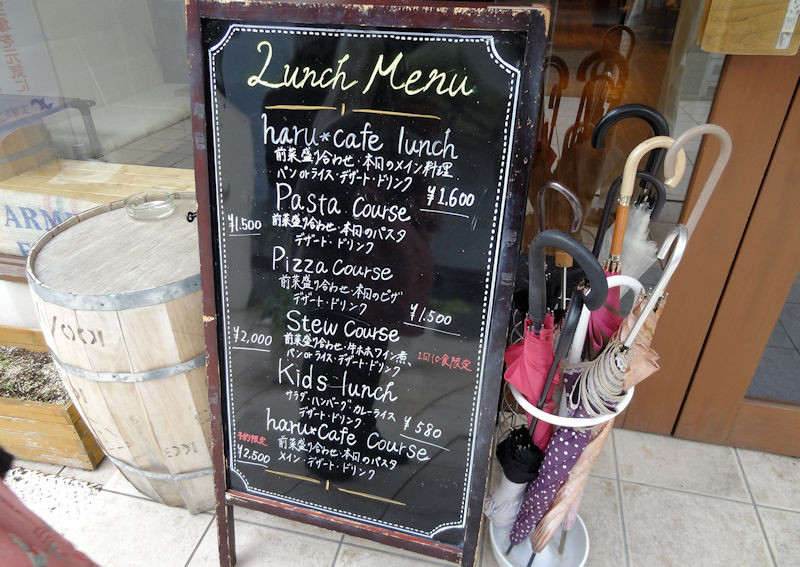 Lunch Menu
haru*cafe lunch
前菜盛り合わせ・本日のメイン料理
パンorライス・デザート・ドリンク
¥1,600
Pasta Course
¥1,500
前菜盛り合わせ・本日のパスタ
デザート・ドリンク
Pizza Course
前菜盛り合わせ・本日のピザ
デザート・ドリンク
¥1,500
Stew Course
¥2,000
前菜盛り合わせ・牛ホホワイン煮、
パンorライス・デザート・ドリンク
1日10食限定
Kids lunch
サラダ・ハンバーグ・カレーライス
デザート・ドリンク
¥580
haru*Cafe Course
予約限定
¥2,500
前菜盛り合わせ・本日のパスタ
メイン・デザート・ドリンク
ARM
を元気に